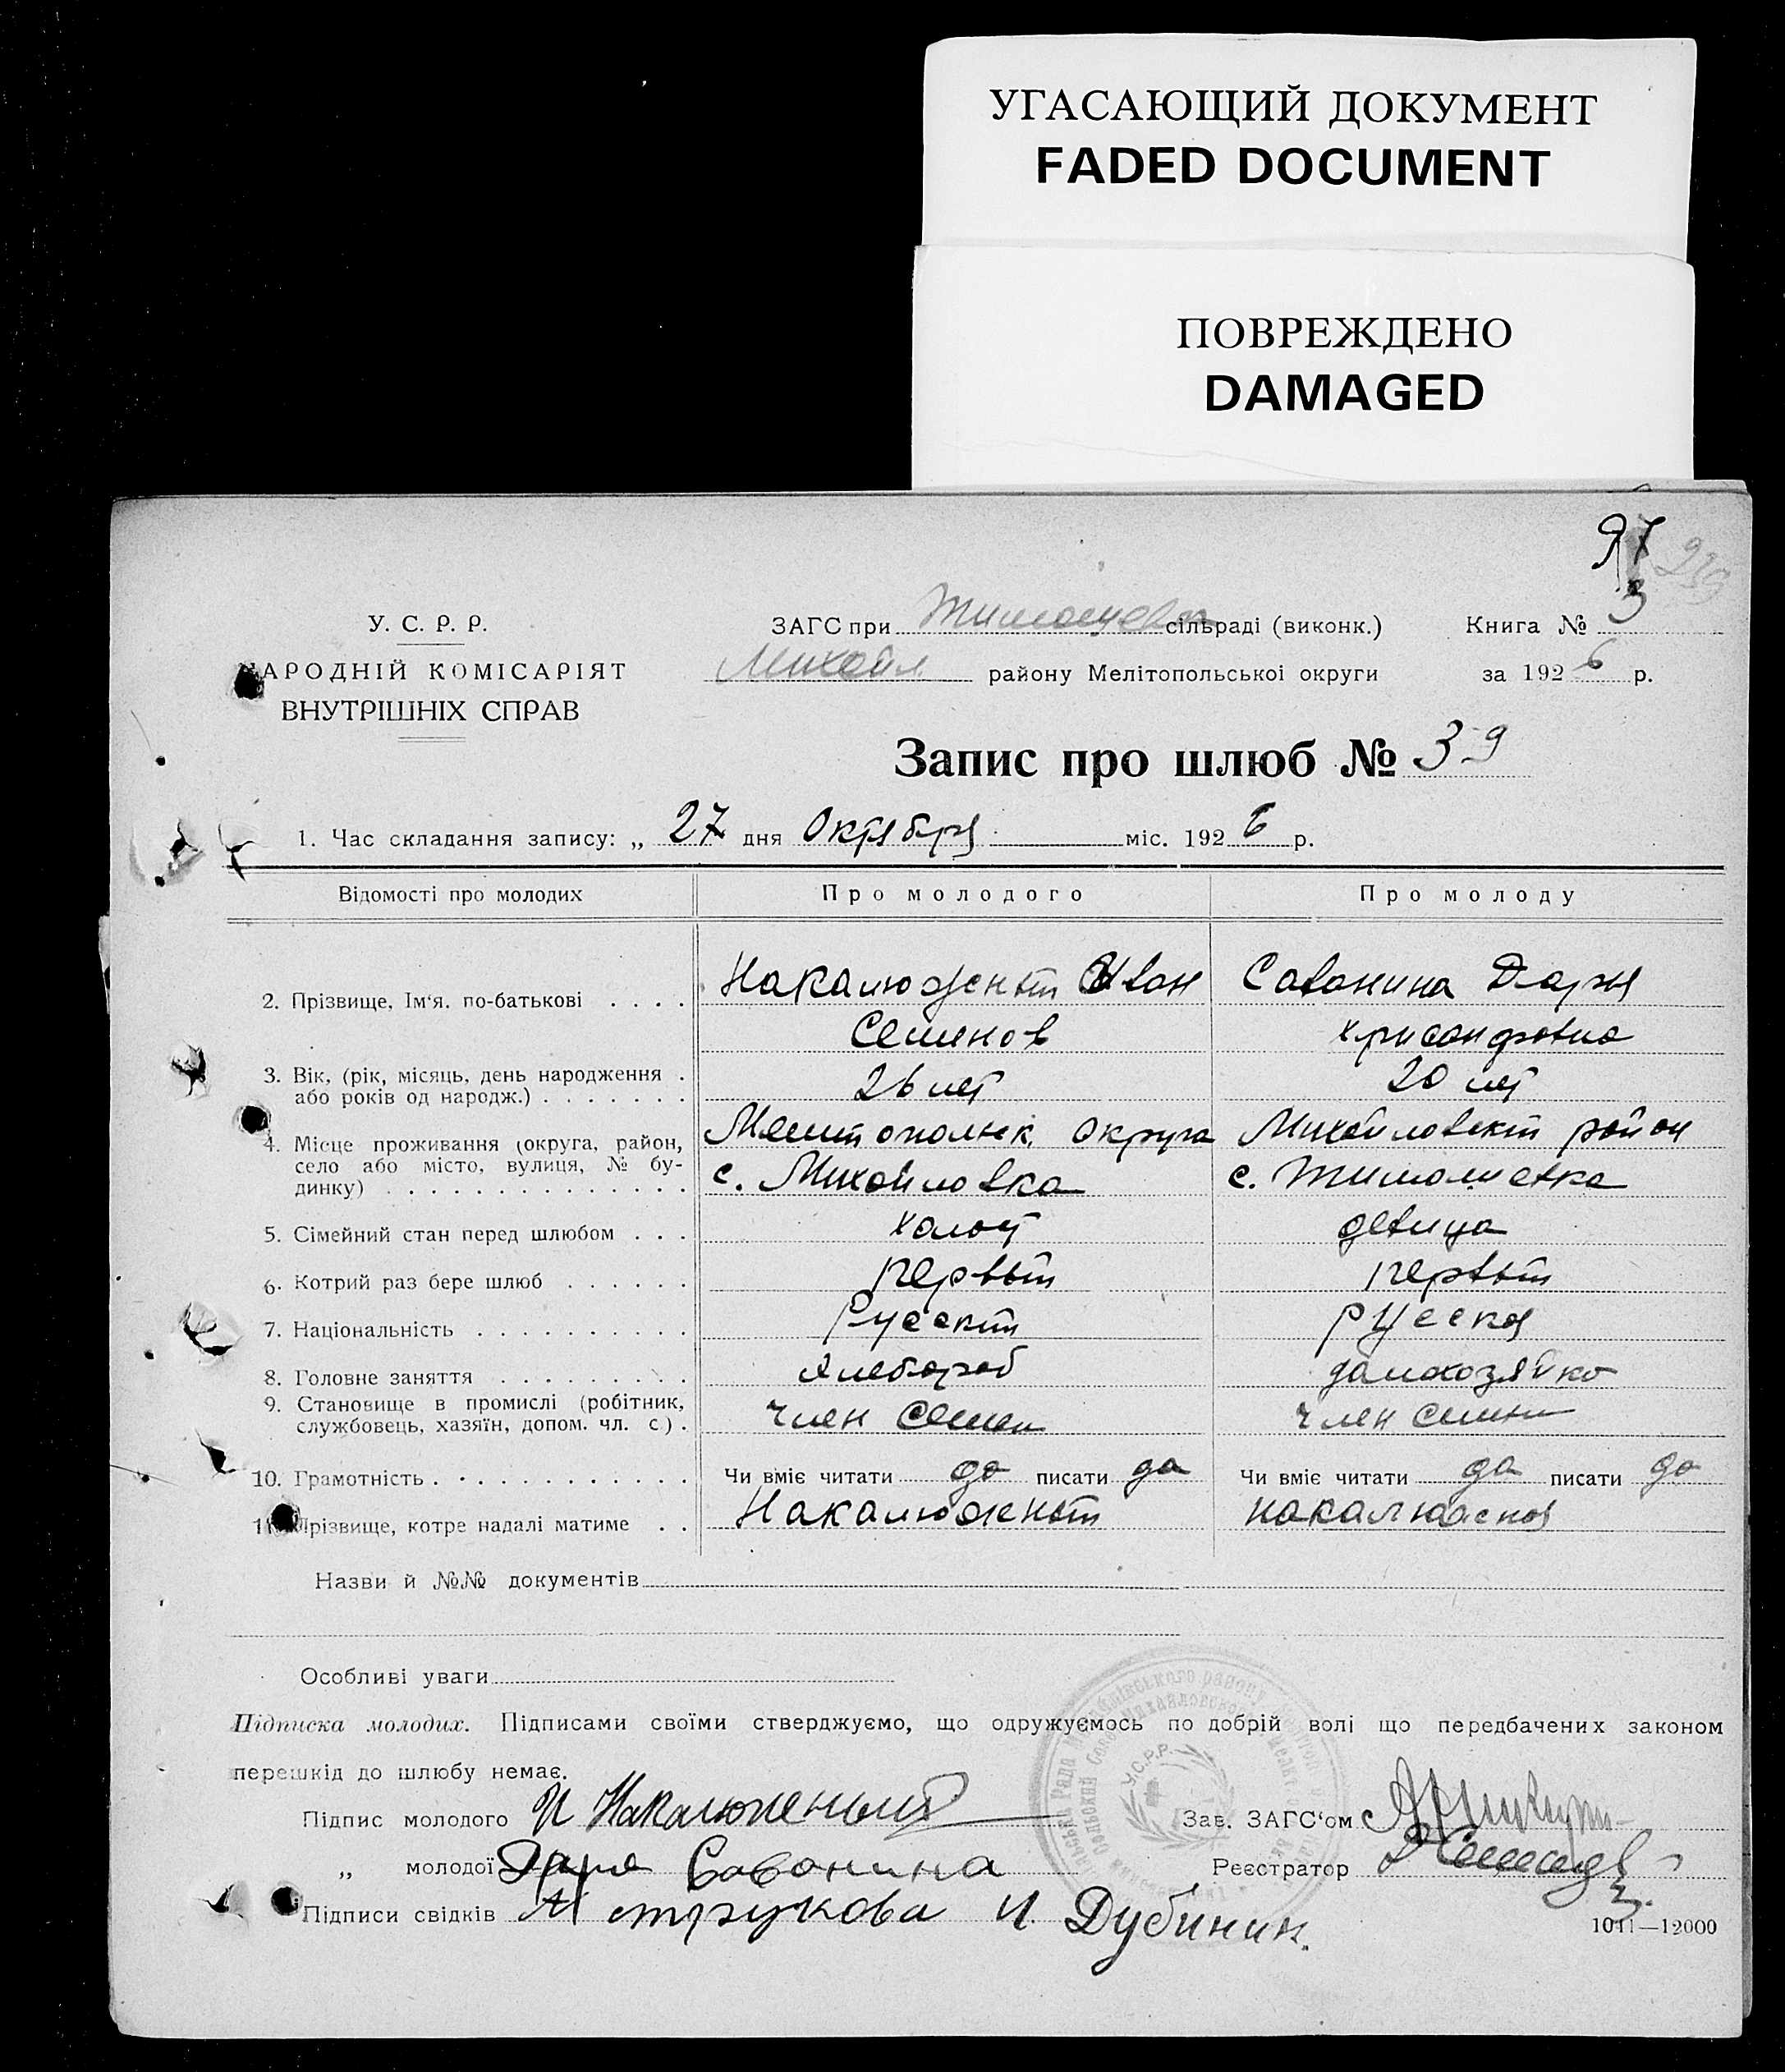 УГАСАЮЩИЙ ДОКУМЕНТ
FADED DOCUMENT
ПОВРЕЖДЕНО
DAMAGED
97
239
У. С. Р. Р.
НАРОДНІЙ КОМІСАРІЯТ
ВНУТРІШНІХ СПРАВ
ЗАГС при Тимошевск сільраді (виконк.)
Михайл району Мелітопольської округи
Книга № 3
за 1926 р.
Запис про шлюб № 39
1. Час складання запису: „ 27 дня Октября міс. 1926 р.
Відомості про молодих Про молодого Про молоду
2. Прізвище, Ім'я. по-батькові . . . . Накалюжный Иван Савонина Дарья
Семенов Хрисанфовна
3. Вік, (рік, місяць, день народження . або років од народж.) . . . . . . . 26 лет 20 лет
4. Місце проживання (округа, район, Мелитопольск. округа Михайловский район
село або місто, вулиця, № бу- с. Михайловка с. Тимошевка
динку) . . . . . . . . . . . . . .
5. Сімейний стан перед шлюбом . . . холост девица
6. Котрий раз бере шлюб . . . . . . первый первый
7. Національність . . . . . . . . . . Русский русская
8. Головне заняття . . . . . . . . . хлебороб домохозяйка
9. Становище в промислі (робітник,
службовець, хазяїн, допом. чл. с.) . член семьи член семьи
10. Грамотність . . . . . . . . . . . Чи вміє читати да писати да Чи вміє читати да писати да
11. Прізвище, котре надалі матиме . . Накалюжный накалюжная
Назви й №№ документів
Особливі уваги
Підписка молодих. Підписами своїми стверджуємо, що одружуємось по добрій волі що передбачених законом
перешкід до шлюбу немає.
Підпис молодого И Накалюженый Зав. ЗАГС'ом
„ молодої Даря Савонина Реєстратор
Підписи свідків М Струкова И. Дубинин.
У.С.Р.Р.
1041—12000